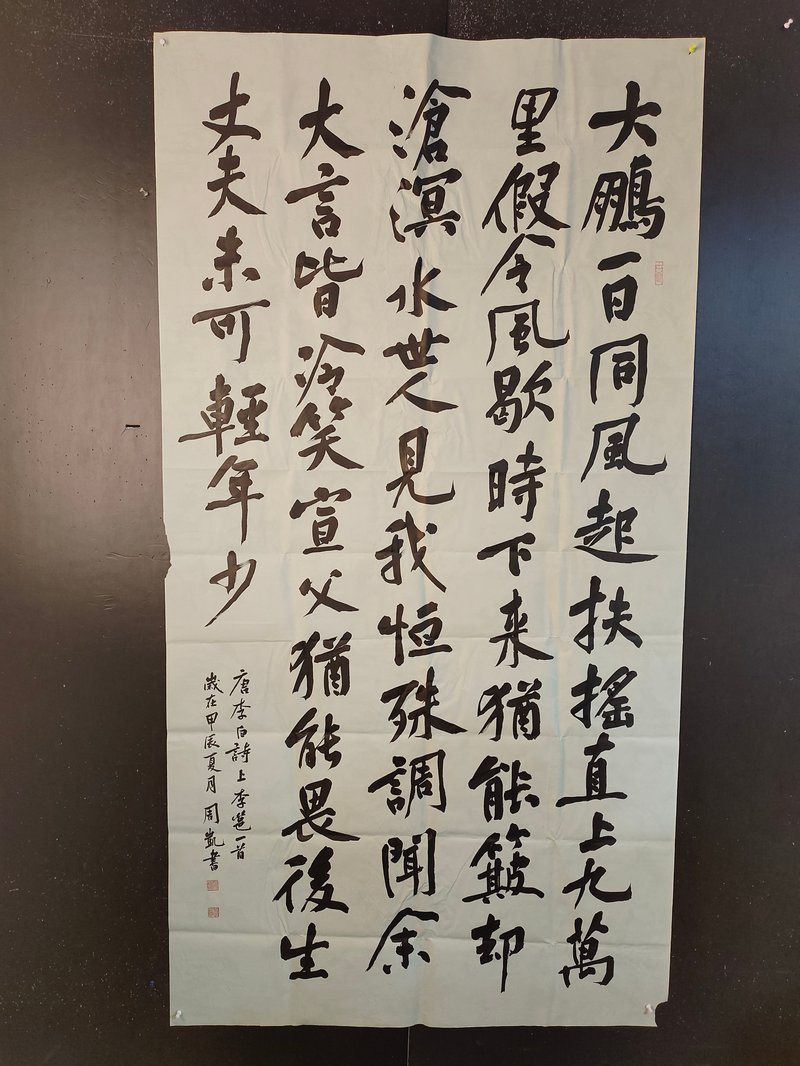 大鵬一日同風起扶搖直上九萬
里假令風歇時下来猶能簸却
滄溟水世人見我恒殊調聞余
大言皆冷笑宣父猶能畏後生
丈夫未可輕年少
唐李白詩上李邕一首
歲在甲辰夏月周凱書